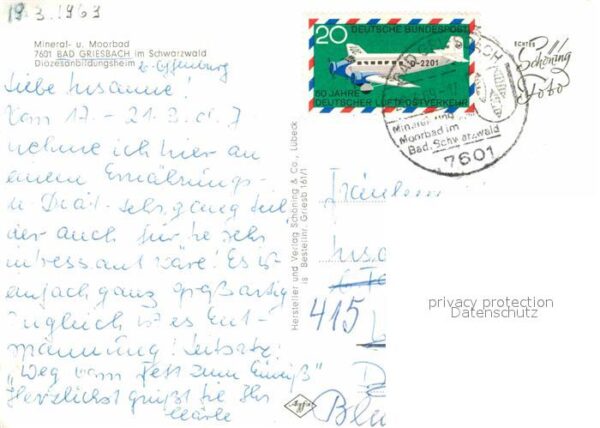 19.3.1969
Mineral- u. Moorbad
7601 BAD GRIESBACH im Schwarzwald
Diözesanbildungsheim
b. Offenburg
Liebe Susanne!
Vom 17. - 21.3.
nehme ich hier an
einem Ernährungs-
u. Diät- lehrgang teil
der auch für Sie sehr
intressant wäre! Es ist
einfach ganz großartig
zugleich ist es Ent-
spannung! Leitsatz:
„Weg vom Fett zum Eiweiß"
Herzlichst grüßt Sie Ihr
Hersteller und Verlag Schöning & Co., Lübeck
is Bestellnr. Griesb 161/1
Agfa
20 DEUTSCHE BUNDESPOST
D-2201
50 JAHRE
DEUTSCHER LUFTPOSTVERKEHR
BAD GRIESBACH
Mineral- und
Moorbad im
Bad. Schwarzwald
7601
ECHTES
Schöning
Foto
Fräulein
Susa
415
privacy protection
Datenschutz